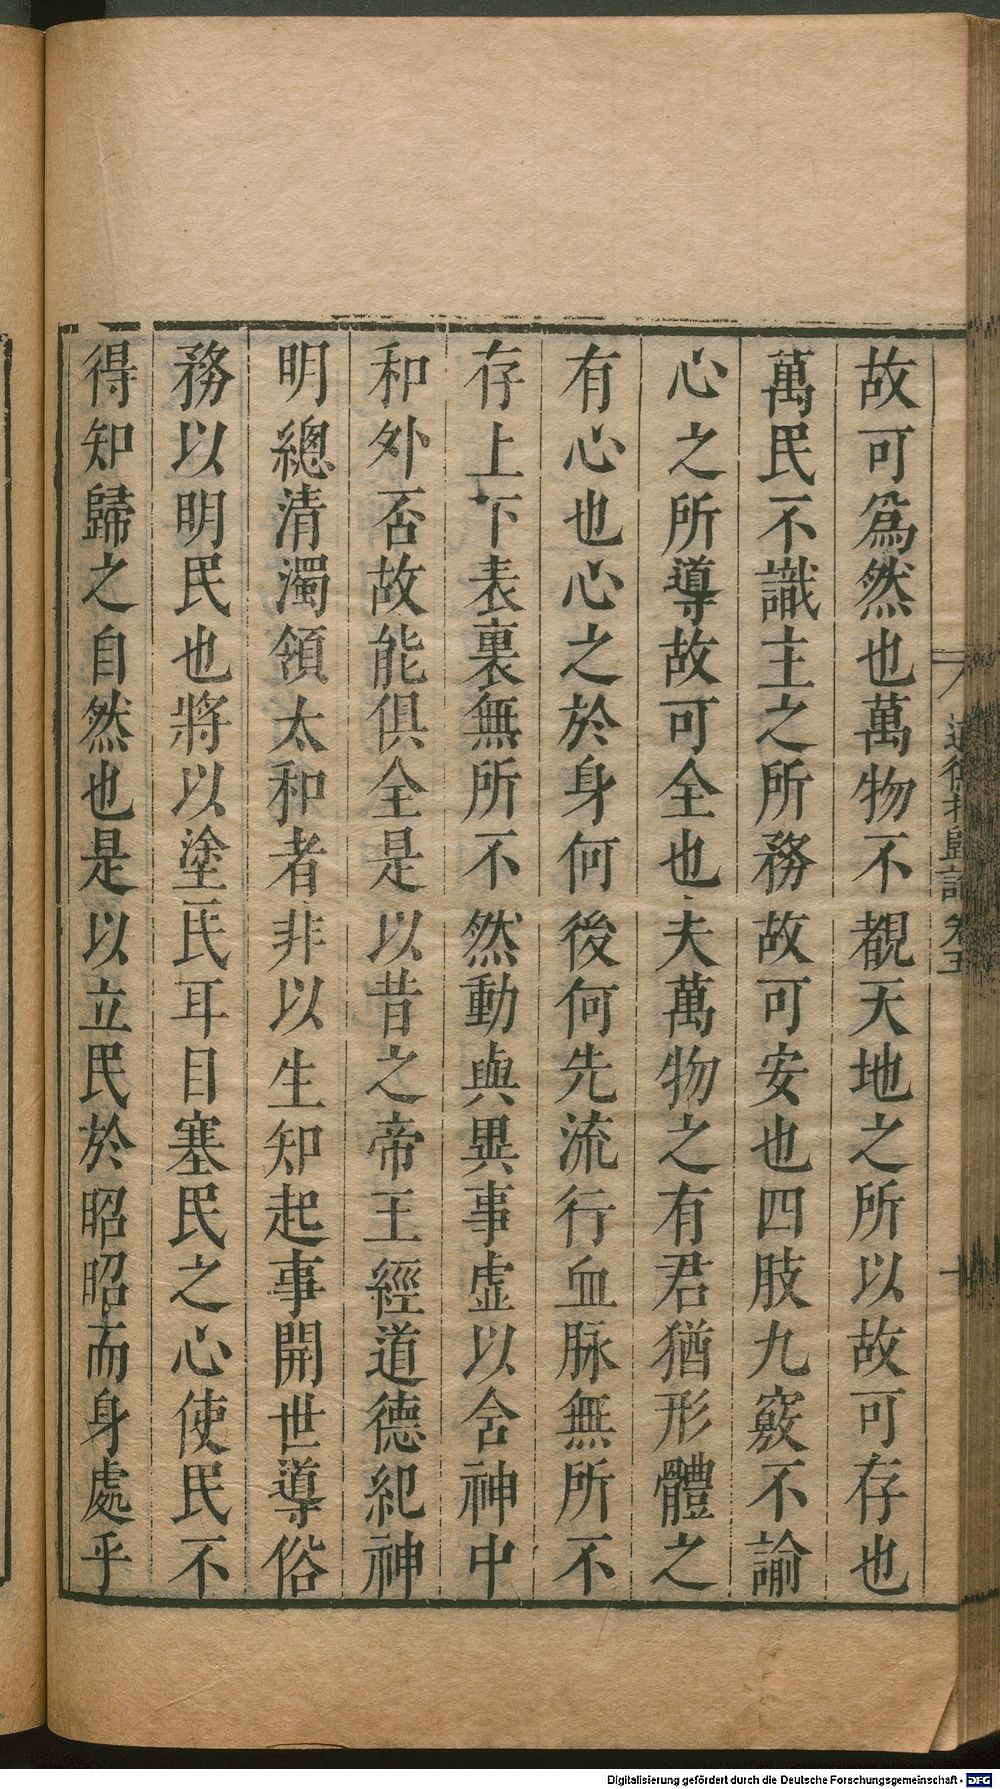 故可爲然也萬物不覩天地之所以故可存也
萬民不識主之所務故可安也四肢九竅不諭
心之所導故可全也夫萬物之有君猶形體之
有心也心之於身何後何先流行血脉無所不
存上下表裏無所不然動與異事虛以含神中
和外否故能俱全是以昔之帝王經道德紀神
明總清濁領太和者非以生知起事開世導俗
務以明民也將以塗民耳目塞民之心使民不
得知歸之自然也是以立民於昭昭而身處乎
道德指歸論 卷五
十
Digitalisierung gefördert durch die Deutsche Forschungsgemeinschaft - DFG